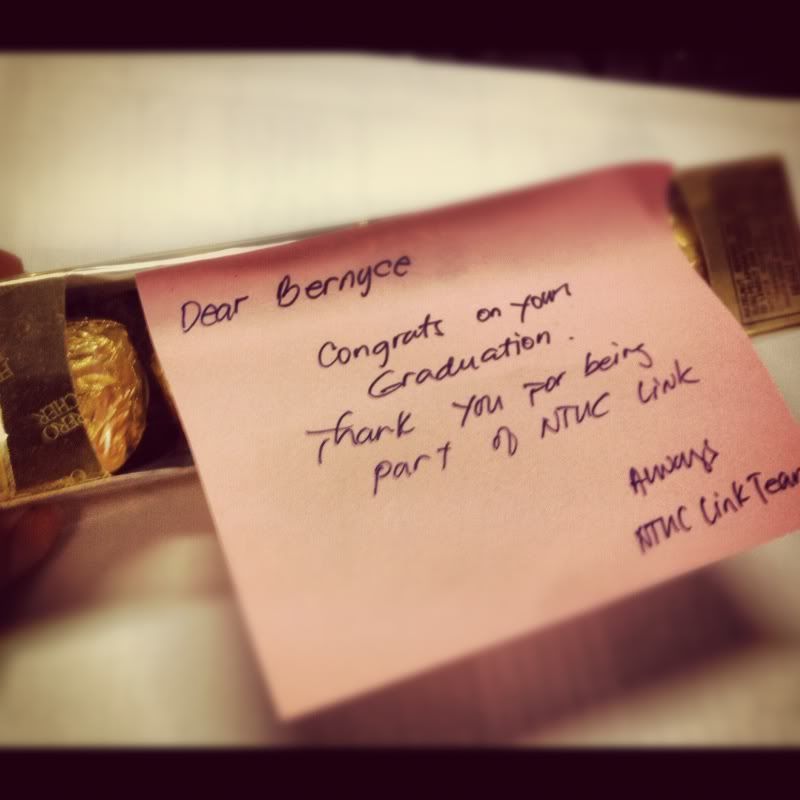 Dear Bernyce
Congrats on your
Graduation.
Thank you for being
part of NTUC Link
Always
NTUC Link Team
FERRERO
ROCHER